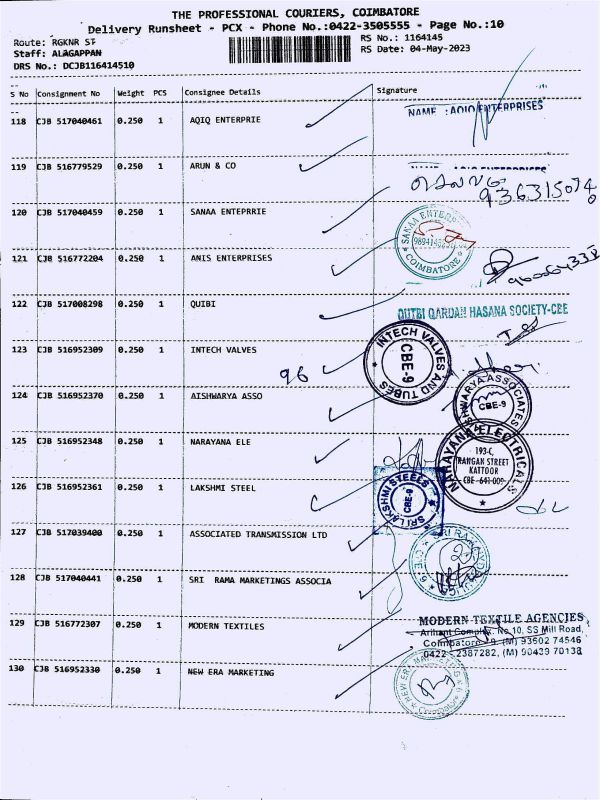 THE PROFESSIONAL COURIERS, COIMBATORE
Delivery Runsheet - PCX - Phone No.:0422-3505555 - Page No.:10
Route: RGKNR ST
RS No.: 1164145
Staff: ALAGAPPAN
RS Date: 04-May-2023
DRS No.: DCJB116414510
S No Consignment No Weight PCS Consignee Details Signature
118 CJB 517040461 0.250 1 AQIQ ENTERPRIE
NAME : AQIQ ENTERPRISES
119 CJB 516779529 0.250 1 ARUN & CO
120 CJB 517040459 0.250 1 SANAA ENTEPRRIE
SANAA ENTER
COIMBATORE
121 CJB 516772204 0.250 1 ANIS ENTERPRISES
122 CJB 517008298 0.250 1 QUIBI
QUTBI QARDAN HASANA SOCIETY-CBE
123 CJB 516952309 0.250 1 INTECH VALVES
96
INTECH VALVES AND TUBES
CBE-9
124 CJB 516952370 0.250 1 AISHWARYA ASSO
SHWARYA ASSOCIATES
CBE-9
125 CJB 516952348 0.250 1 NARAYANA ELE
NARAYANA ELECTRICALS
193-C,
RANGAN STREET
KATTOOR
CBE -641 009
126 CJB 516952361 0.250 1 LAKSHMI STEEL
SRI LAKSHMI STEELS
CBE-9
127 CJB 517039400 0.250 1 ASSOCIATED TRANSMISSION LTD
128 CJB 517040441 0.250 1 SRI RAMA MARKETINGS ASSOCIA
129 CJB 516772307 0.250 1 MODERN TEXTILES
MODERN TEXTILE AGENCIES
Arihant Complex, No 10, SS Mill Road,
Coimbatore - 9, (M) 93602 74546
0422 - 2387282, (M) 90439 70138
130 CJB 516952330 0.250 1 NEW ERA MARKETING